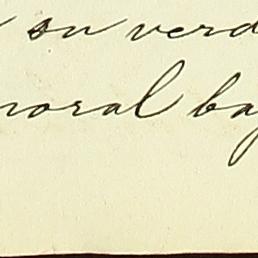 su verd
moral ba